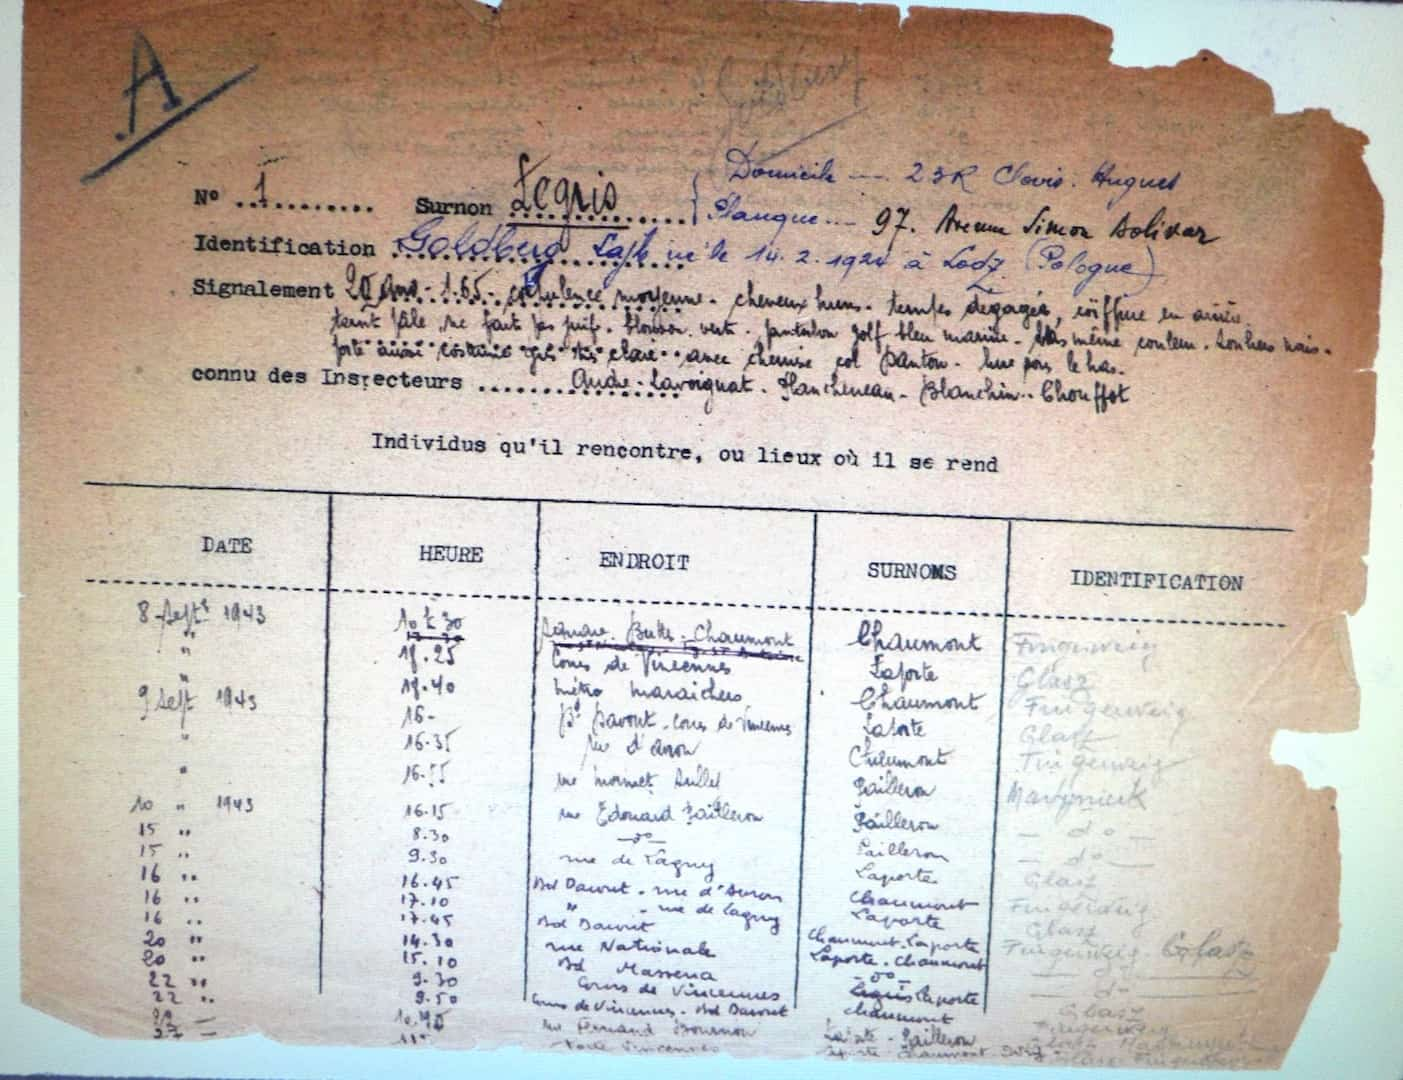 A
Goldberg
Domicile --- 23 R Clovis. Hugues
N° ..1......... Surnon Legris
Planque... 97. Avenue Simon Bolivar
Identification Goldberg né le 14.2.1924 à Lodz (Pologne)
Signalement 20 ans - 1.65 - corpulence moyenne - cheveux bruns - tempes dégagées, coiffure en arrière
teint pâle, ne fait pas juif. blouson vert - pantalon golf bleu marine - bas même couleur. Souliers noirs.
porte aussi costume gris très clair avec chemise col Danton.
connu des Inspecteurs ....... André - Lavoignat - Plancheneau - Blanchin - Chouffot
Individus qu'il rencontre, ou lieux où il se rend
DATE HEURE ENDROIT SURNOMS IDENTIFICATION
8 Septe 1943 10h30 Square Buttes-Chaumont Chaumont Fingerweig
" 18.25 Cours de Vincennes Laporte Glasz
" 18.40 métro Maraichers Chaumont Fingerweig
9 Sept 1943 16- Bd Davout - cours de Vincennes Laporte Glasz
" 16.35 rue d'avron Chaumont Fingerweig
" 16.55 rue Pailleron
10 " 1943 16.15 rue Edouard Pailleron Pailleron — do —
15 " 8.30 — do — Pailleron — do —
15 " 9.30 rue de Lagny Laporte Glasz
16 " 16.45 Bd Davout - rue d'Avron Chaumont Fingerweig
16 " 17.10 " - rue de Lagny Laporte Glasz
16 " 17.45 Bd Davout Chaumont-Laporte Fingerweig - Glasz
20 " 14.30 rue Nationale Laporte - Chaumont — do —
20 " 15.10 Bd Massena — do — — do —
22 " 9.30 Cours de Vincennes Laporte Glasz
22 " 9.50 Cours de Vincennes - Bd Davout Chaumont Fingerweig
rue Fernand Bournon Laporte - Pailleron Glasz
27 — Porte Vincennes Laporte - Chaumont Glasz Fingerweig